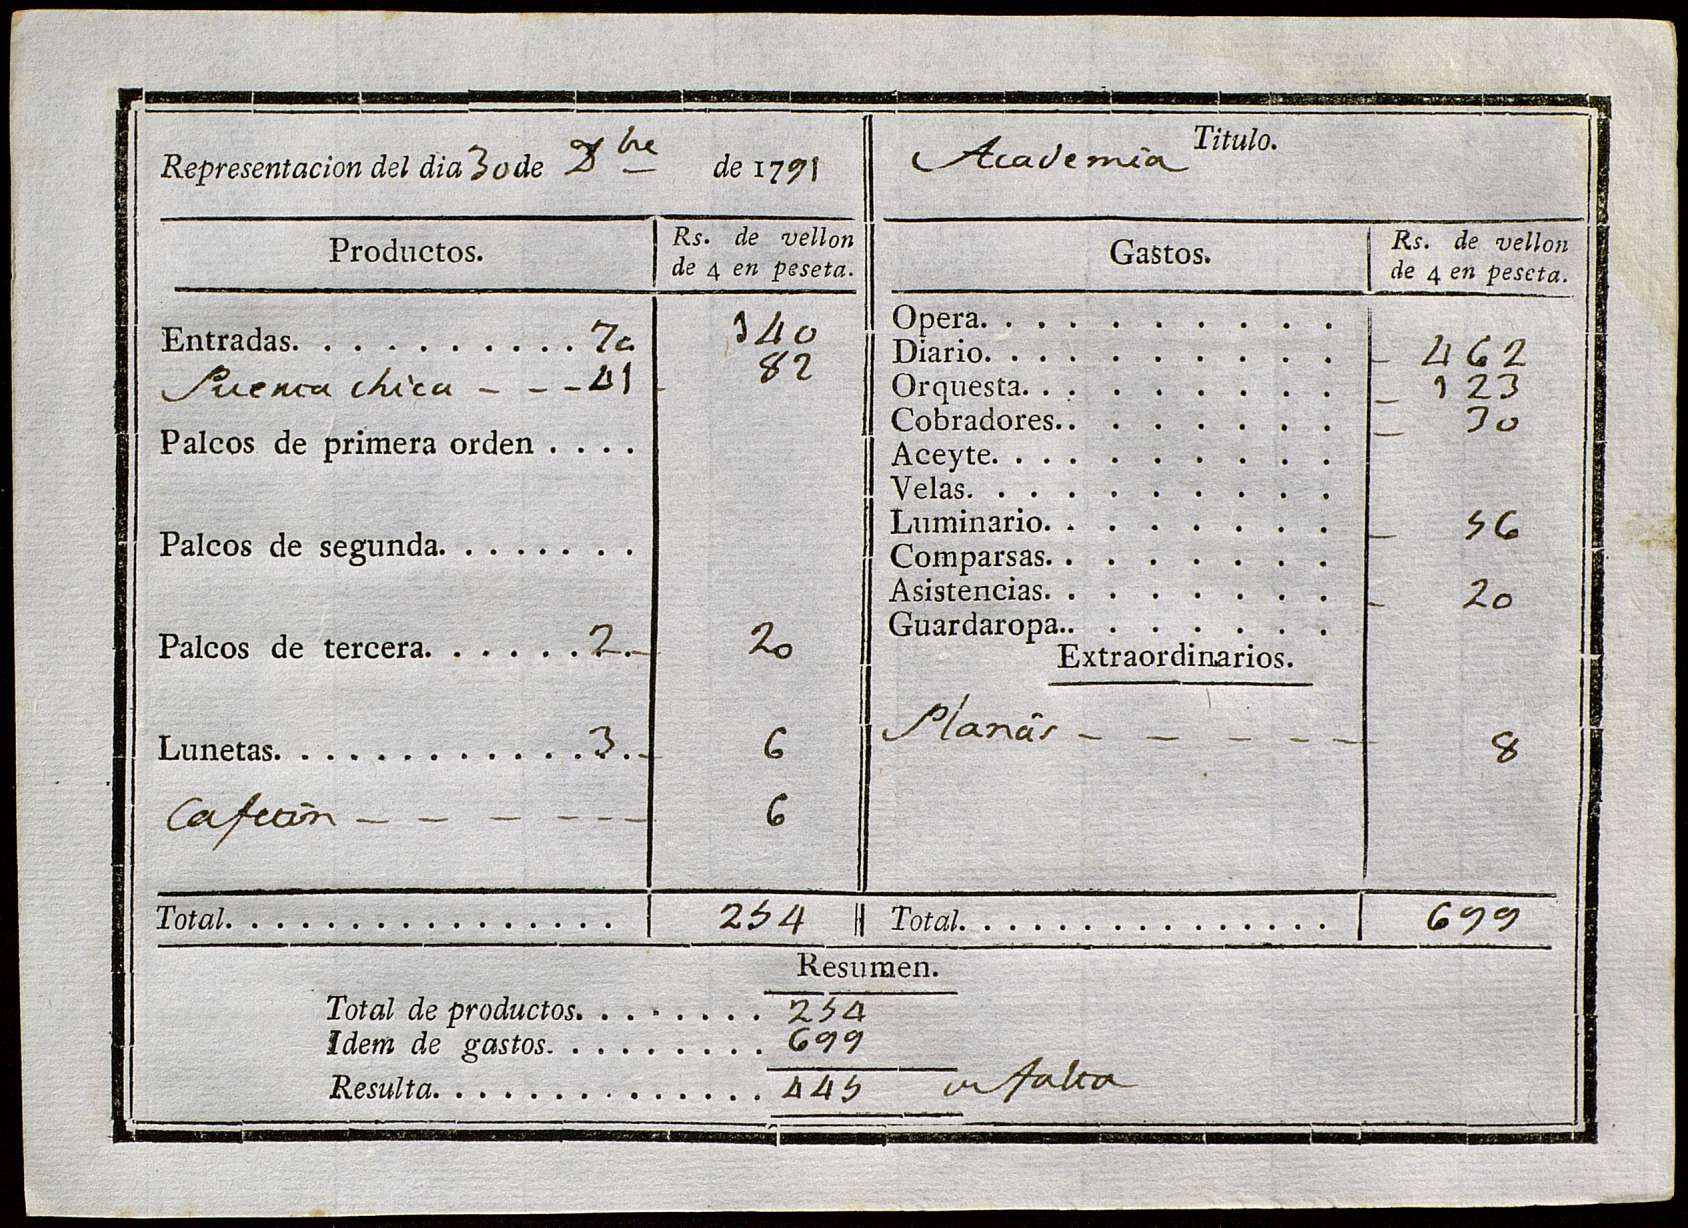 Representacion del dia 30 de Xbre de 1791
Productos.
Rs. de vellon
de 4 en peseta.
Entradas. . . . . . . . . . . 70 140
Puerta chica - - - 41 - 82
Palcos de primera orden . . . .
Palcos de segunda. . . . . . . .
Palcos de tercera. . . . . . . 2. - 20
Lunetas. . . . . . . . . . . . 3. - 6
Cafetin - - - - - - - 6
Total. . . . . . . . . . . . . . . . 254
Titulo.
Academia
Gastos.
Rs. de vellon
de 4 en peseta.
Opera. . . . . . . . . .
Diario. . . . . . . . . . - 462
Orquesta. . . . . . . . . - 123
Cobradores.. . . . . . . - 30
Aceyte. . . . . . . . . .
Velas. . . . . . . . . .
Luminario. . . . . . . . - 56
Comparsas. . . . . . . .
Asistencias. . . . . . . . - 20
Guardaropa.. . . . . . .
Extraordinarios.
Planas - - - - - - 8
Total. . . . . . . . . . . . . . . 699
Resumen.
Total de productos. . . . . . . . 254
Idem de gastos. . . . . . . . . . 699
Resulta. . . . . . . . . . . . . . . 445 en falta